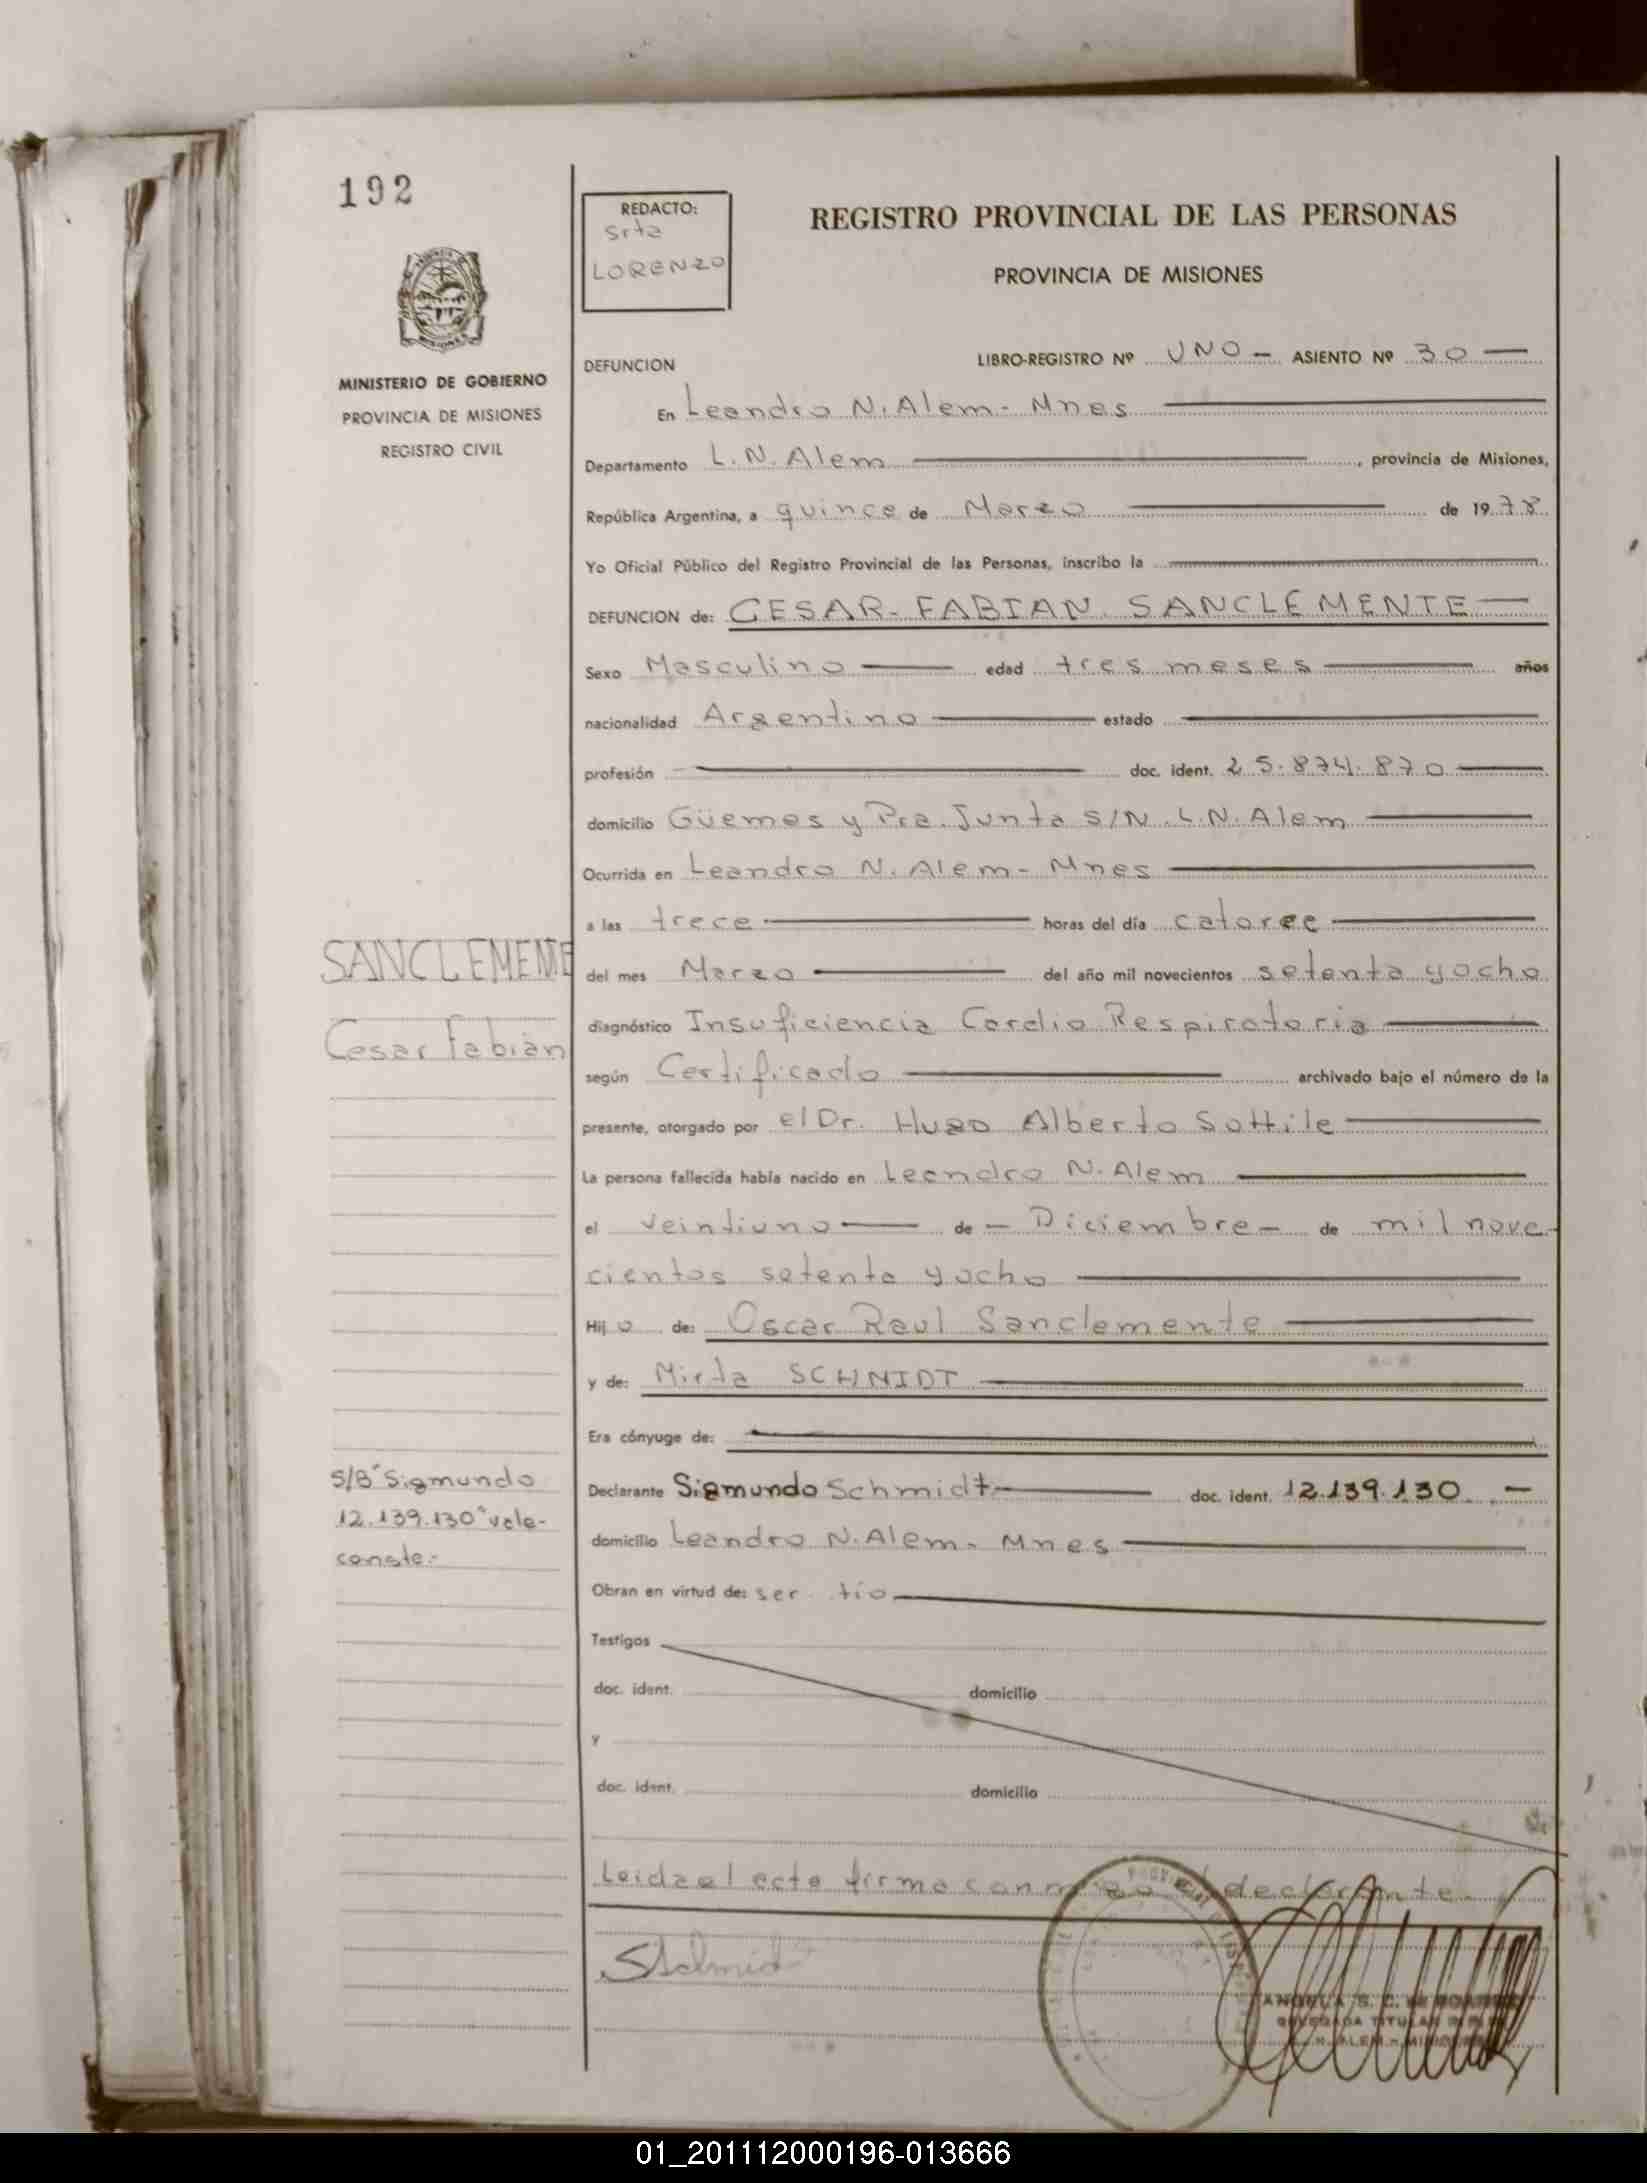 192
REDACTO:
srta
LORENZO
REGISTRO PROVINCIAL DE LAS PERSONAS
PROVINCIA DE MISIONES
MINISTERIO DE GOBIERNO
PROVINCIA DE MISIONES
REGISTRO CIVIL
DEFUNCION LIBRO-REGISTRO Nº UNO — ASIENTO Nº 30 —
En Leandro N. Alem - Mnes
Departamento L.N. Alem , provincia de Misiones,
República Argentina, a quince de Marzo de 1978
Yo Oficial Público del Registro Provincial de las Personas, inscribo la
DEFUNCION de: CESAR-FABIAN SANCLEMENTE
Sexo Masculino edad tres meses años
nacionalidad Argentino estado
profesión doc. ident. 25.874.870
domicilio Güemes y Pra. Junta S/N. L.N. Alem
Ocurrida en Leandro N. Alem - Mnes
a las trece horas del día catorce
SANCLEMENTE
del mes Marzo del año mil novecientos setenta y ocho
diagnóstico Insuficiencia Cardio Respiratoria
Cesar Fabián
según Certificado archivado bajo el número de la
presente, otorgado por el Dr. Hugo Alberto Sottile
La persona fallecida había nacido en Leandro N. Alem
el veintiuno de — Diciembre — de mil nove-
cientos setenta y ocho
Hijo de: Oscar Raul Sanclemente
y de: Mirta SCHNIDT
Era cónyuge de:
S/B "Sigmundo
12.139.130" vale-
conste.-
Declarante Sigmundo Schmidt doc. ident. 12.139.130. —
domicilio Leandro N. Alem - Mnes
Obran en virtud de: ser tio
Testigos
doc. ident. domicilio
y
doc. ident. domicilio
Leida el acta firma conmigo el declarante.
SSchmidt
ANGELA S. C. de
DELEGADA TITULAR R. P. P.
L. N. ALEM - MISIONES
01_201112000196-013666